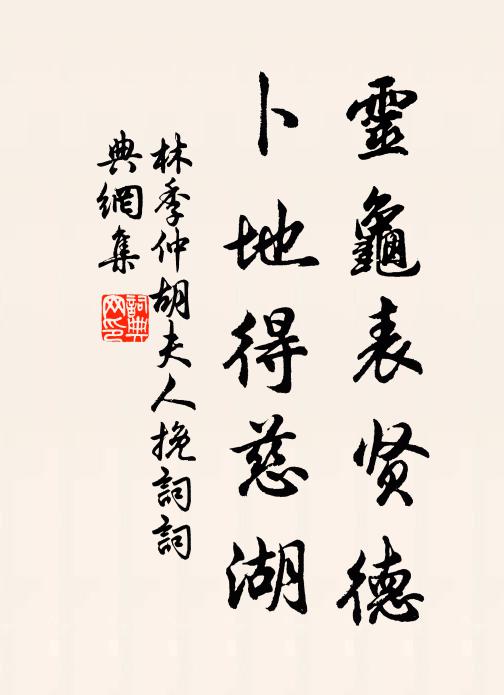 靈龜表贤德
卜地得慈湖
林季仲胡夫人挽詞詞
典網集
詞典
网印